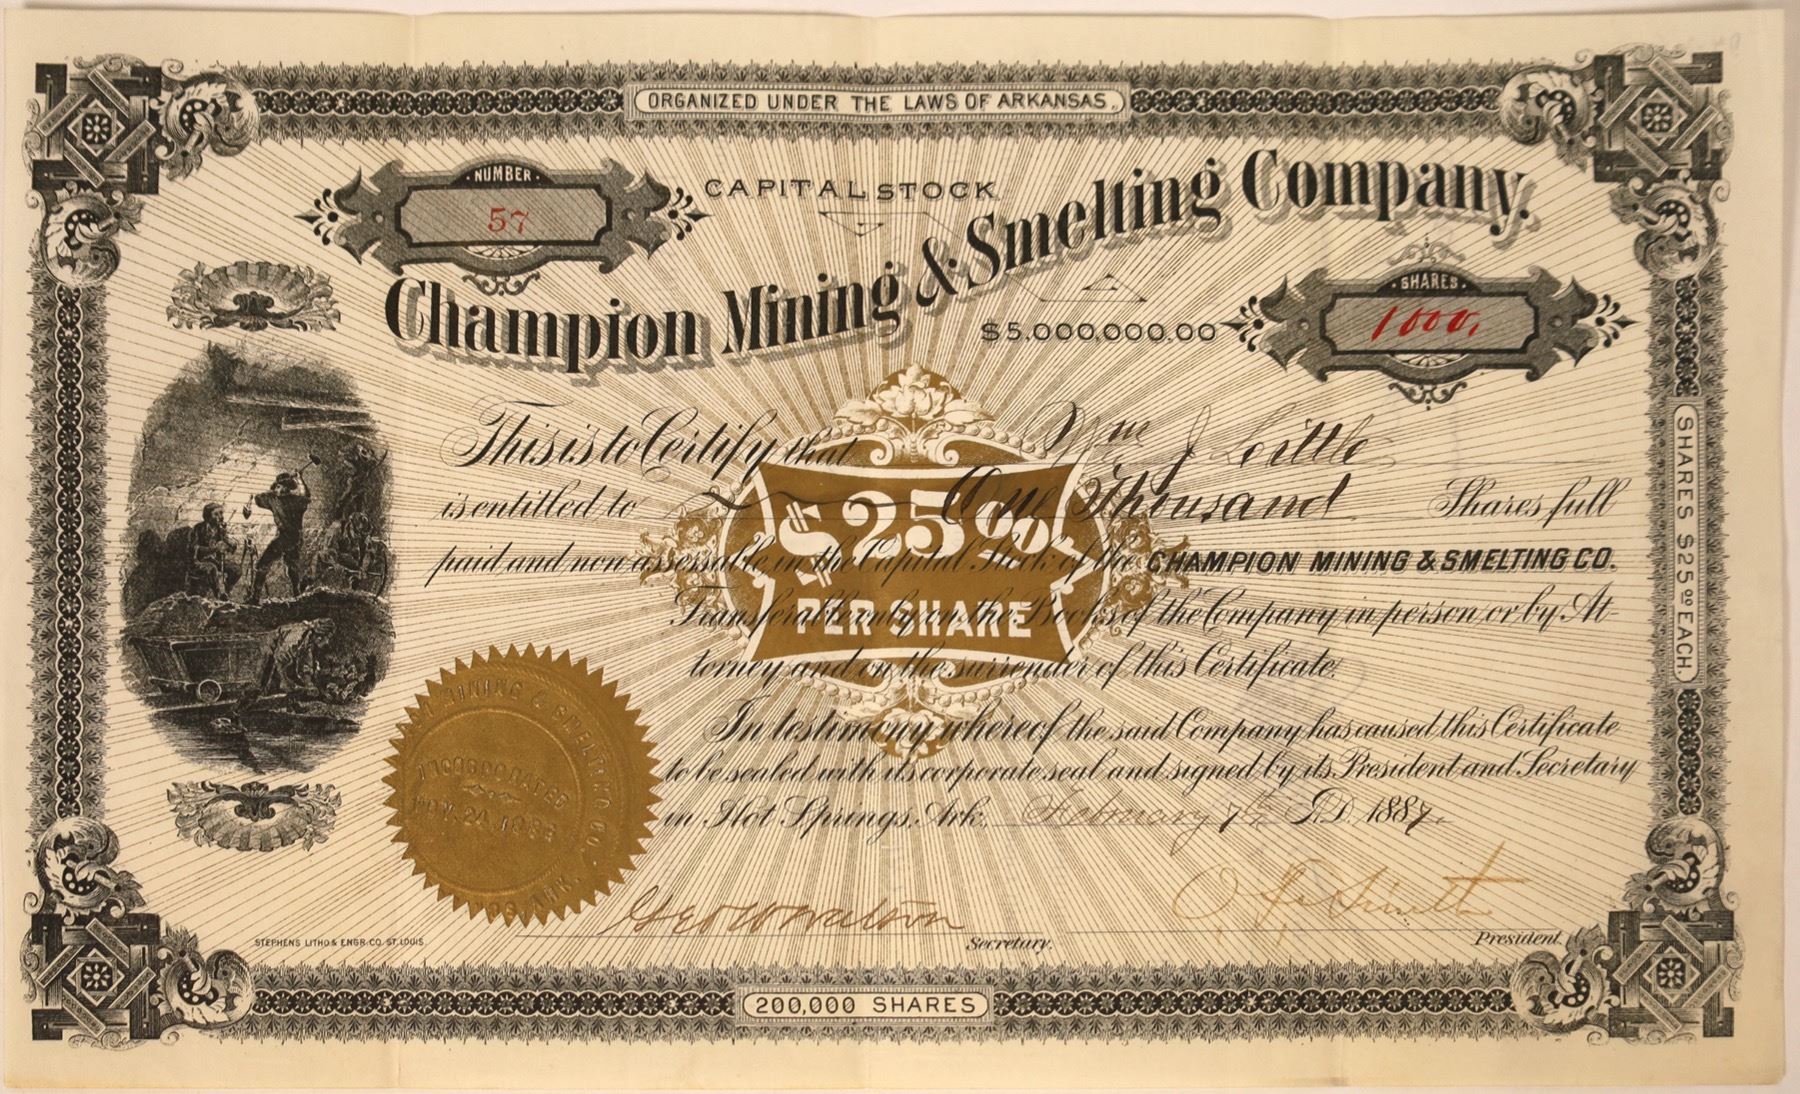 ORGANIZED UNDER THE LAWS OF ARKANSAS.
NUMBER
57
CAPITAL STOCK
$5.000,000.00
Champion Mining & Smelting Company.
SHARES
1000.
This is to Certify that Wm J Little
is entitled to One Thousand Shares full
paid and non assessable in the Capital Stock of the CHAMPION MINING & SMELTING CO.
Transferable only on the Books of the Company in person or by At-
torney and on the surrender of this Certificate.
$25 00
PER SHARE
In testimony whereof the said Company has caused this Certificate
to be sealed with its corporate seal and signed by its President and Secretary
in Hot Springs, Ark, February 7th A.D. 1887.
MINING & SMELTING CO.
INCORPORATED
NOV. 24, 1886
ARK.
Geo W Watson
Secretary.
President.
STEPHENS LITHO & ENGR. CO. ST. LOUIS.
200,000 SHARES
SHARES $25 00 EACH.